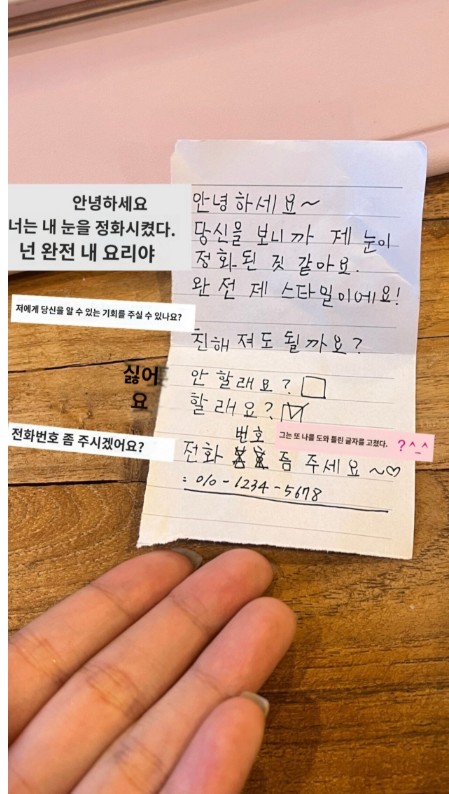 안녕하세요
너는 내 눈을 정화시켰다.
넌 완전 내 요리야
안녕하세요~
당신을 보니까 제 눈이
정화된 짓 같아요.
완전 제 스타밀이에요!
저에게 당신을 알 수 있는 기회를 주실 수 있나요?
친해져도 될까요?
싫어
요
안 할래요? ☐
할래요? ☑
전화번호 좀 주시겠어요?
번호
전화 좀 주세요~♡
그는 또 나를 도와 틀린 글자를 고졌다. ?^_^
: 010-1234-5678